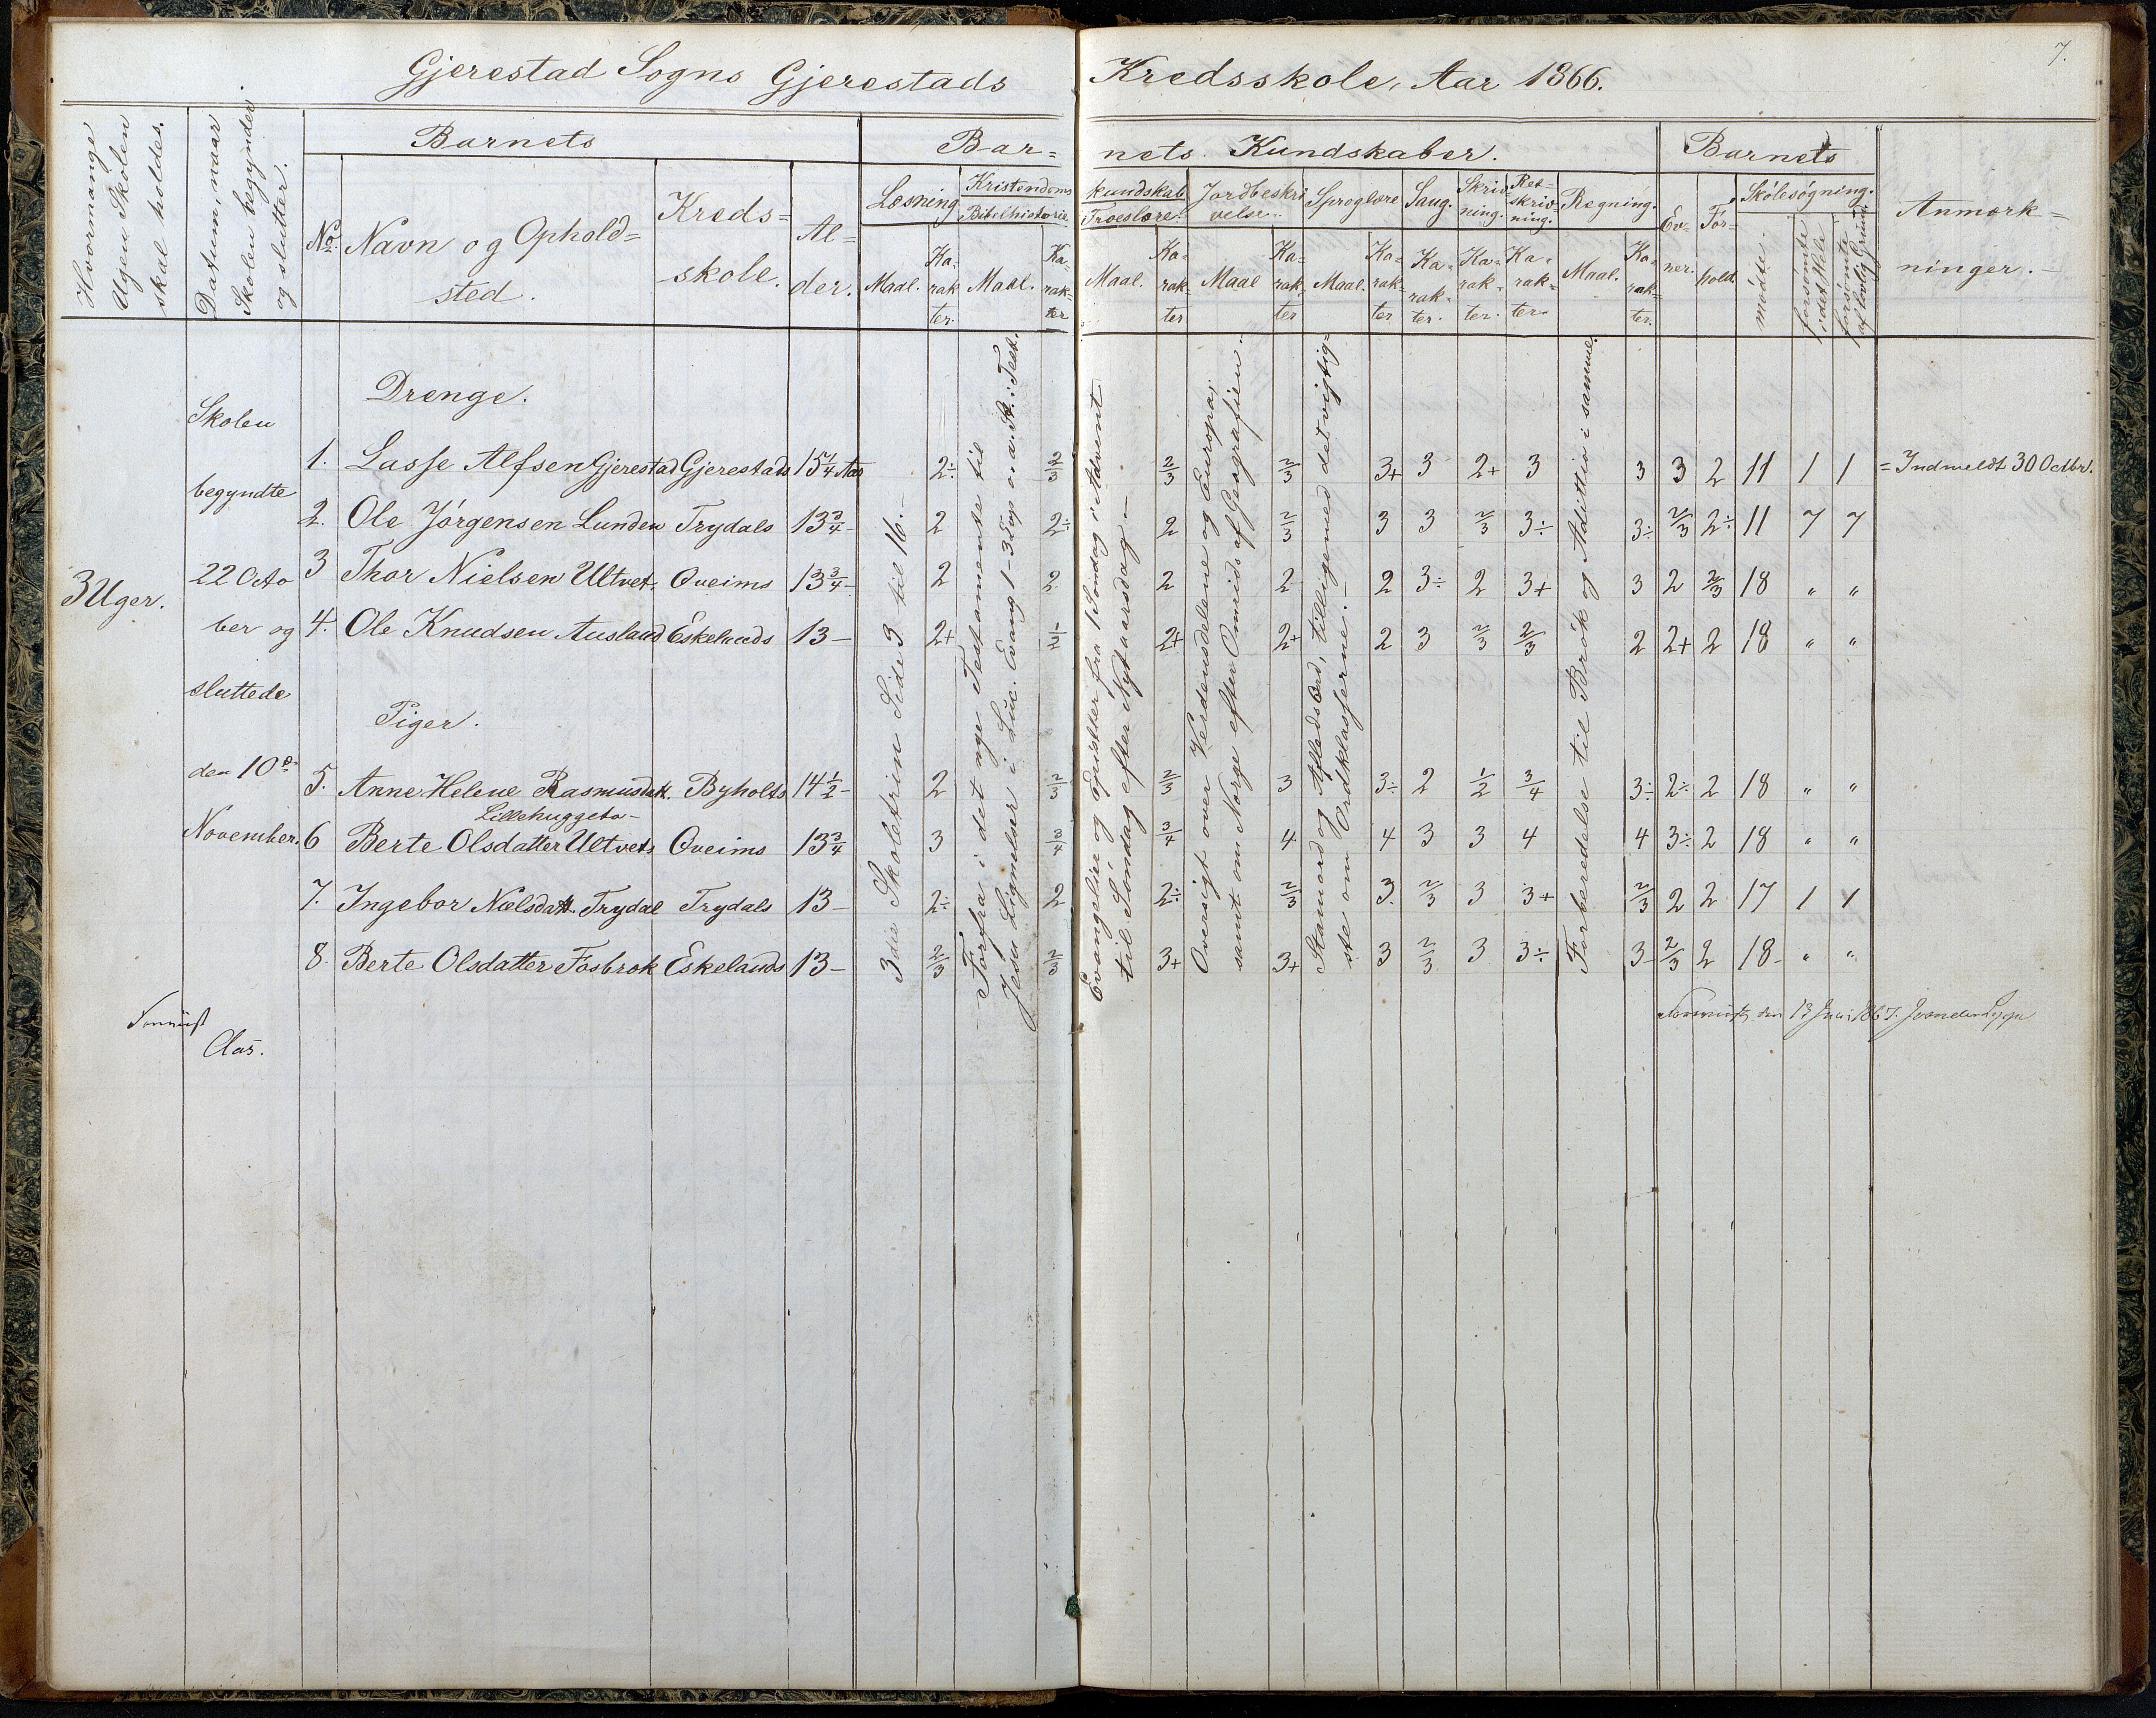 7.
Gjerestad Sogns Gjerestads Kredsskole, Aar 1866.
Hvormange Ugen Skolen skal holdes.
Datum, naar Skolen begynder og slutter.
Barnets
No. Navn og Ophold=sted.
Kreds=skole.
Al=der.
Bar=nets Kundskaber.
Læsning
Maal. Ka=rak=ter.
Kristendoms kundskab
Bibelhistorie
Maal. Ka=rak=ter
Troeslære.
Maal. Ka=rak=ter
Jordbeskrivelse.
Maal Ka=rak=ter
Sproglære
Maal. Ka=rak=ter
Sang. Ka=rak=ter.
Skriv=ning. Ka=rak=ter.
Ret=skriv=ning. Ka=rak=ter.
Regning.
Maal. Ka=rak=ter.
Barnets
Ev=ner.
For=hold.
Skólesógning.
mødte.
forsømte i det Hele
forsømte af lovlig Grund.
Anmærk=ninger.
3 Uger.
Skolen
begyndte
22 Octo
ber og
sluttede
den 10de
November.
Drenge.
1. Lasse Alfsen Gjerestad Gjerestads 15 1/4 Aar 2÷ 2/3 2/3 2/3 3+ 3 2+ 3 3 3 2 11 1 1 = Indmeldt 30 Octbr.
2. Ole Jórgensen Lunden Trydals 13 3/4 – 2 2÷ 2 2/3 3 3 2/3 3÷ 3÷ 2/3 2÷ 11 7 7
3 Thor Nielsen Ultvet. Qveims 13 3/4 – 2 2 2 2 2 3÷ 2 3+ 3 2 2/3 18 " "
4. Ole Knudsen Ausland Eskelands 13 – 2+ 1/2 2+ 2+ 2 3 2/3 2/3 2 2+ 2 18 " "
Piger.
5. Anne Helene Rasmusdatt. Byholts 14 1/2 – 2 2/3 2/3 3 3÷ 2 1/2 3/4 3÷ 2÷ 2 18 " "
Lillehuggeto–
6 Berte Olsdatter Ultvets Qveims 13 3/4 3 3/4 3/4 4 4 3 3 4 4 3÷ 2 18 " "
7. Ingebor Nælsdatt. Trydal Trydals 13 – 2÷ 2 2÷ 2/3 3. 2/3 3 3+ 2/3 2 2 17 1 1
8. Berte Olsdatter Fosbrok Eskelands 13 – 2/3 2/3 3+ 3+ 3 2/3 3 3÷ 3 2/3 2 18 – " "
3die Skoletrin Side 3 til 16.
Forfra i det nye Testamente til
Jesu Lignelser i Luc. Evang 1–3
Evangelier og Epistler fra 1 Søndag i Advent
til Søndag efter Nytaarsdag –
Oversigt over Verdensdelene og Europa;
samt om Norge efter Omrids af Geografien.
Stamord og Afledsord, tilligemed det vigtig=
ste om Ordklasserne. –
Forberedelse til Brøk og Adittion i samme.
Aas.
den 13 Juni 1867.